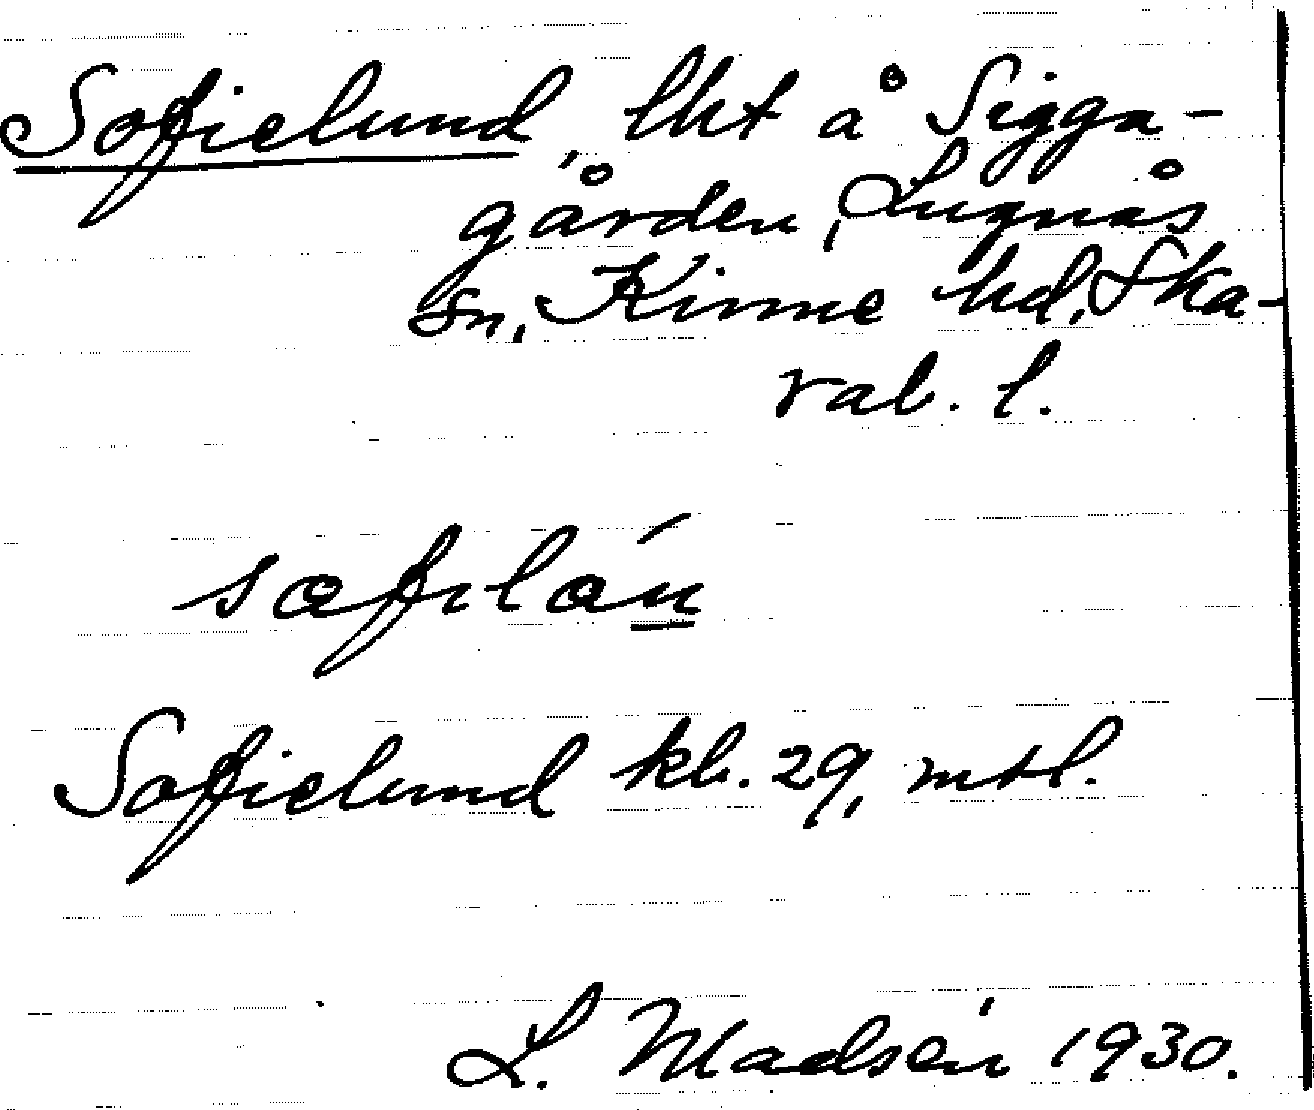 Sofielund, lht å Sigga-
gården, Lugnås
sn, Kinne hd, Ska-
rab. l.
Sofielund kb. 29, mtl.
L. Madsén 1930.